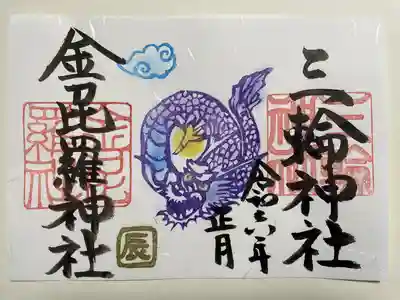 三輪神社
令和六年
正月
辰
金毘羅神社